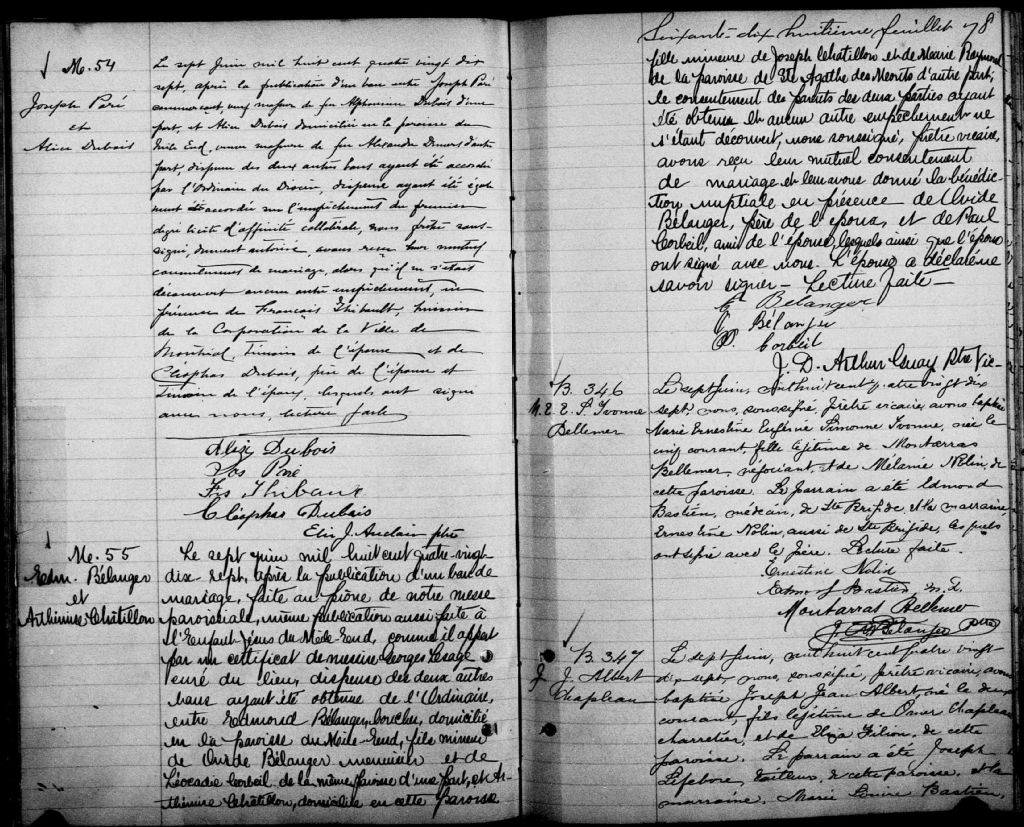 M. 54
Joseph Paré
et
Alice Dubois
Le sept Juin mil huit cent quatre vingt dix
sept, après la publication d'un ban entre Joseph Paré
commerçant, veuf majeur de feu Alphonsine Dubois d'une
part, et Alice Dubois domiciliée en la paroisse du
Mile End, veuve majeure de feu Alexandre Demers d'autre
part, dispense des deux autres bans ayant été accordée
par l'Ordinaire du Diocèse, dispense ayant été égale
ment été accordée sur l'empêchement du premier
degré licite d'affinité collatérale, nous prêtre sous-
signé, dument autorisé, avons reçu leur mutuel
consentement de mariage, alors qu'il ne s'était
découvert aucun autre empêchement, en
présence de François Thibault,
de la Corporation de la Ville de
Montréal, Témoin de l'époux et de
Cléophas Dubois, père de l'épouse et
Témoin de l'épouse, lesquels ont signé
avec nous, lecture faite
Alix Dubois
Jos Paré
Frs Thibault
Cléophas Dubois
J. Auclair ptre
M. 55
Edm. Bélanger
et
Arthémise Châtillon
Le sept juin mil huit cent quatre-vingt-
dix-sept, après la publication d'un ban de
mariage, faite au prône de notre messe
paroissiale, même publication aussi faite à
l'Enfant Jésus du Mile-End, comme il appert
par un certificat de messire Georges Lesage
curé du lieu, dispense des deux autres
bans ayant été obtenue de l'Ordinaire,
entre Edmond Bélanger, boucher, domicilié
en la paroisse du Mile-End, fils mineur
de Ovide Bélanger menuisier et de
Léocadie Corbeil de la même paroisse d'une part, et Ar-
thémise Châtillon, domiciliée en cette paroisse
Soixante-dix huitième feuillet 78
fille mineure de Joseph Châtillon et de Marie Raymond
de la paroisse de Ste Agathe des Monts d'autre part;
le consentement des parents des deux parties ayant
été obtenu et aucun autre empêchement ne
s'étant découvert, nous soussigné, prêtre vicaire,
avons reçu leur mutuel consentement
de mariage et leur avons donné la bénédic-
tion nuptiale en présence de Ovide
Bélanger, père de l'époux, et de Paul
Corbeil, ami de l'épouse, lesquels ainsi que l'époux
ont signé avec nous. L'épouse a déclaré ne
savoir signer - Lecture faite -
E Bélanger
O Bélanger
P. Corbeil
J. D. Arthur Guay Ptre Vic-
B. 346
M. E. E. S. Yvonne
Bellemer
Le sept Juin, mil huit cent quatre vingt dix
sept, nous, soussigné, prêtre vicaire, avons baptisé
Marie Ernestine Eugénie Simonne Yvonne, née le
cinq courant, fille légitime de Montarras
Bellemer, négociant, et de Mélanie Nolin, de
cette paroisse. Le parrain a été Edmond
Bastien, médecin, de Ste Brigide, et la marraine,
Ernestine Nolin, aussi de Ste Brigide, lesquels
ont signé avec le père. Lecture faite.
Ernestine Nolin
Edmond J Bastien M. D.
Montarras Bellemer
J. Bélanger Ptre
B. 347
J. J. Albert
Chapleau
Le sept Juin, mil huit cent quatre vingt
dix sept, nous, soussigné, prêtre vicaire, avons
baptisé Joseph Jean Albert, né le deux
courant, fils légitime de Omer Chapleau
charretier, et de Eliza Filion, de cette
paroisse. Le parrain a été Joseph
Lefebvre, tailleur, de cette paroisse, et la
marraine, Marie Louise Bastien,